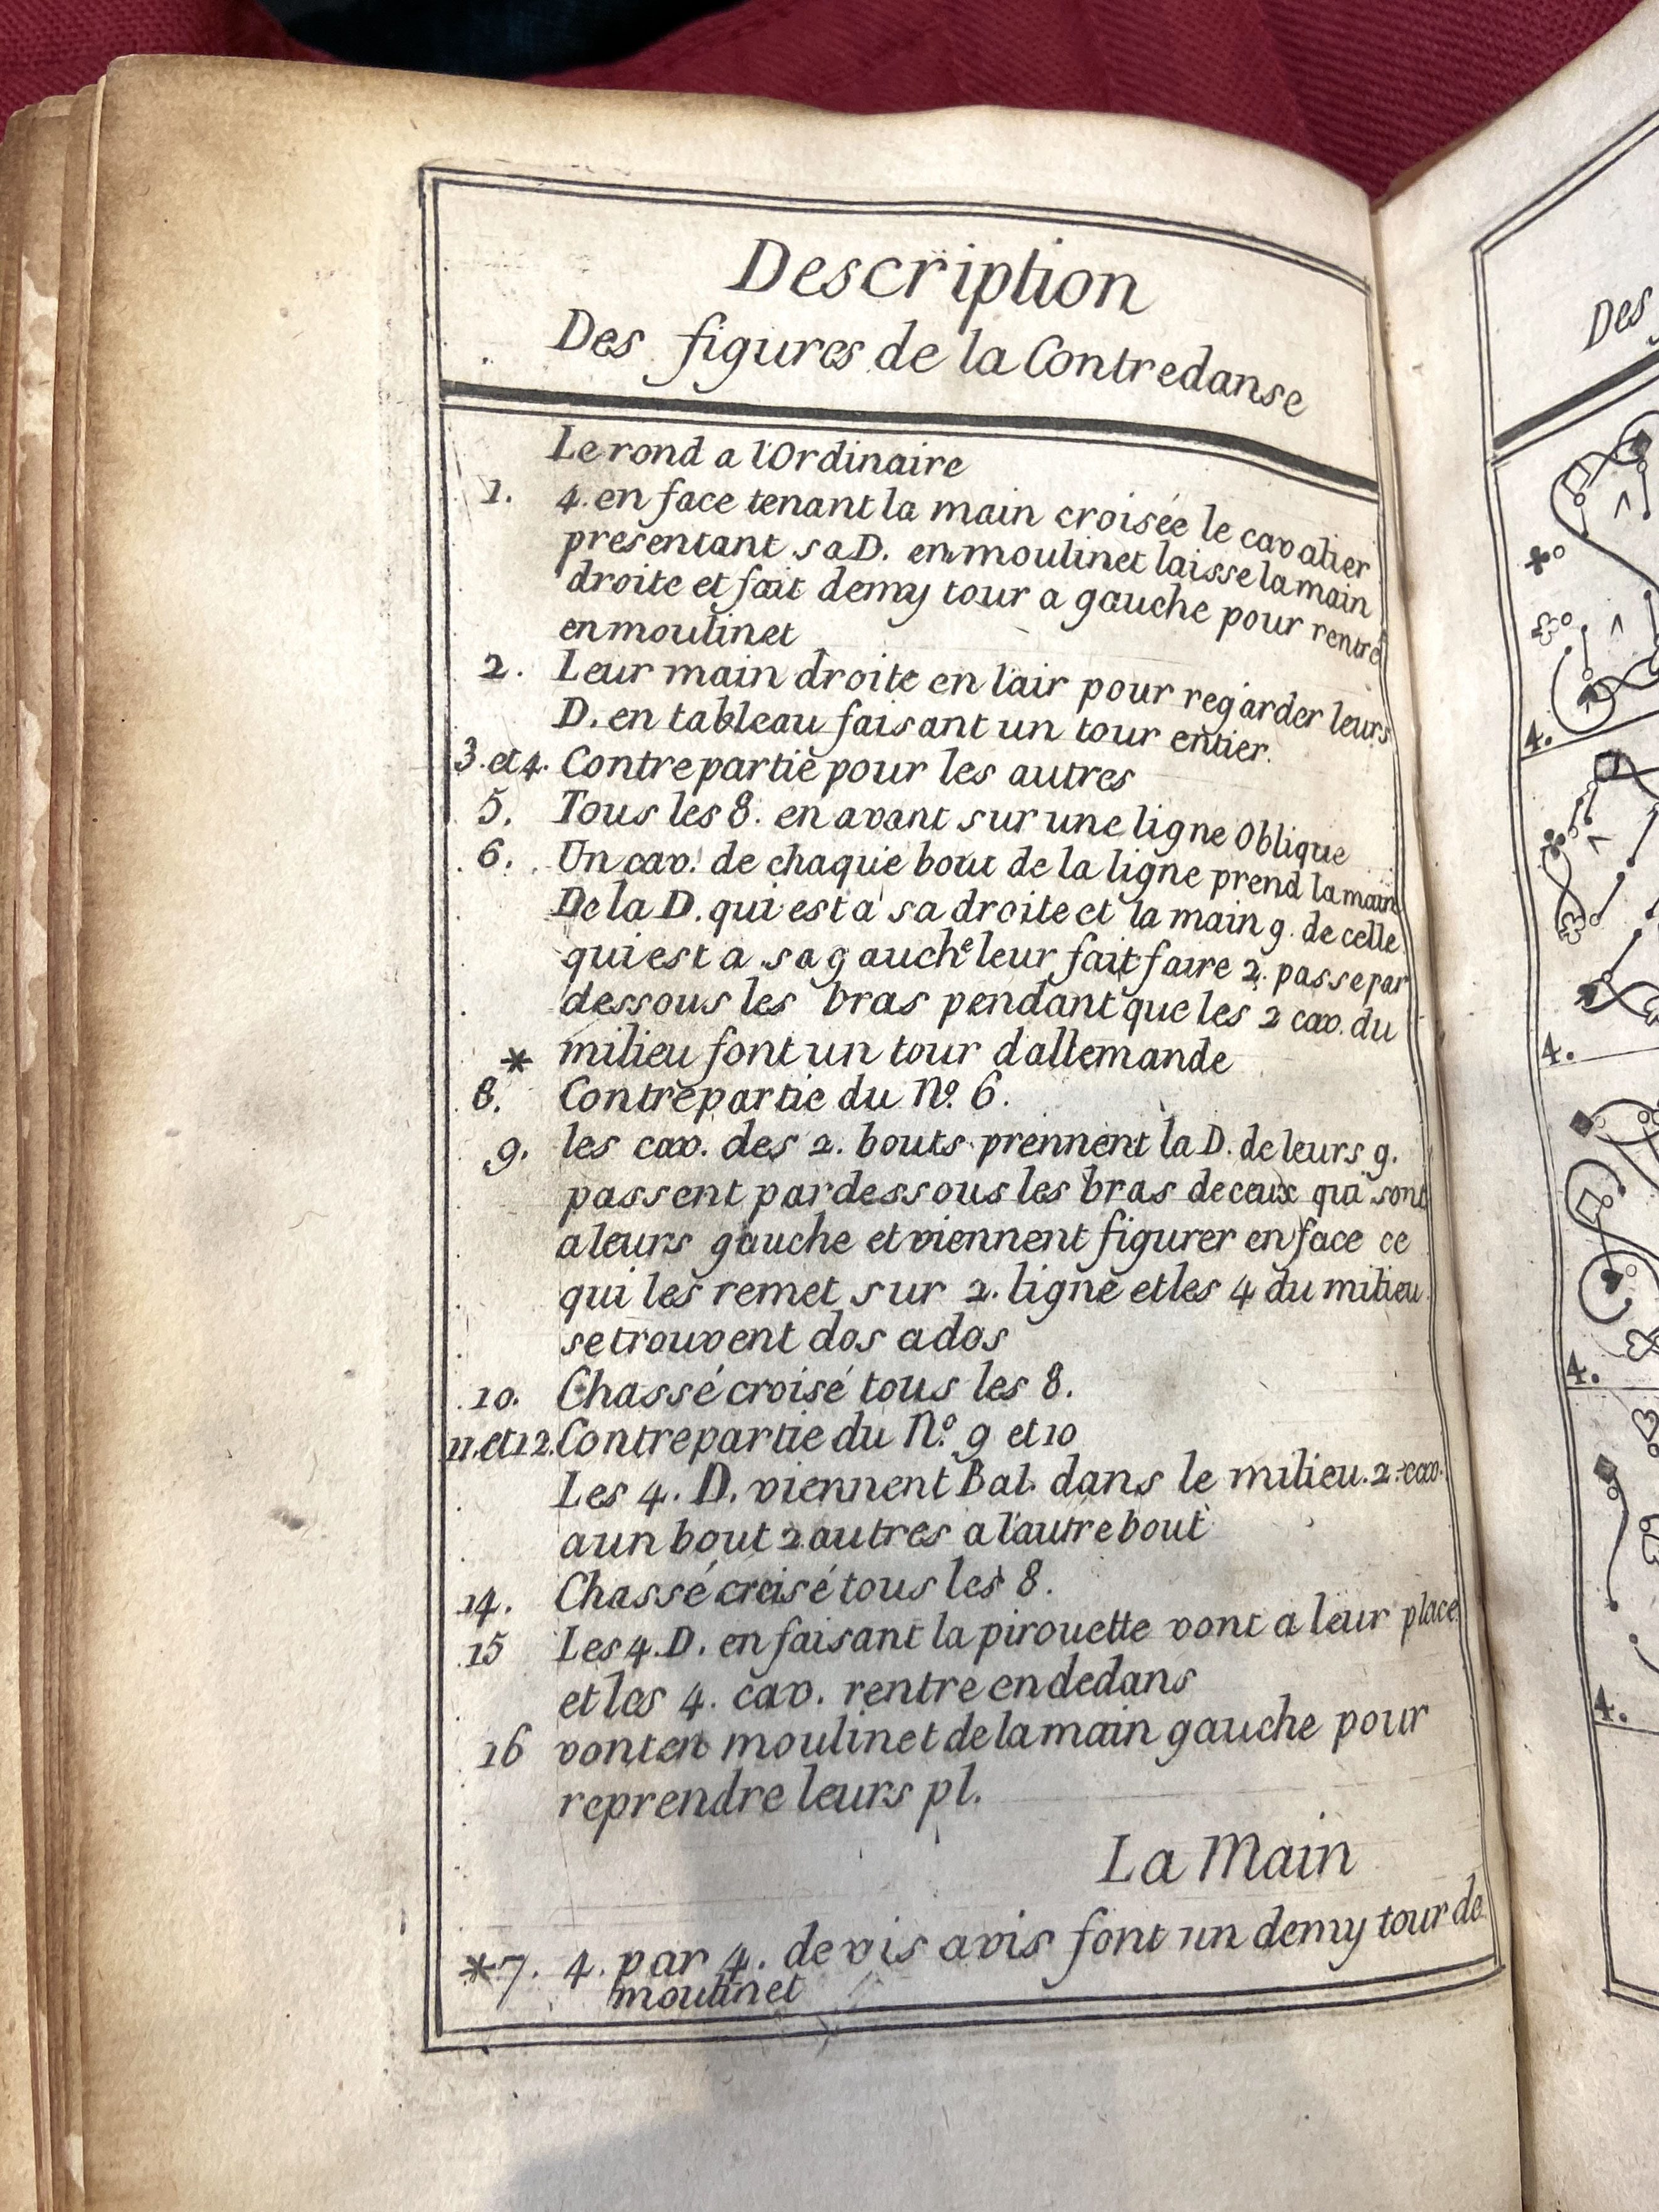 Description
Des figures de la Contredanse
Le rond a l'Ordinaire
1. 4. en face tenant la main croisée le cavalier
presentant sa D. en moulinet laisse la main
droite et fait demy tour a gauche pour rentre
en moulinet
2. Leur main droite en l'air pour regarder leurs
D. en tableau faisant un tour entier.
3. et 4. Contrepartie pour les autres
5. Tous les 8. en avant sur une ligne Oblique
6. Un cav. de chaque bout de la ligne prend la main
De la D. qui est a sa droite et la main g. de celle
qui est a sa gauche leur fait faire 2. passe par
dessous les bras pendant que les 2 cav. du
* milieu font un tour dallemande
8. Contrepartie du No. 6.
9. les cav. des 2. bouts prennent la D. de leurs g.
passent par dessous les bras de ceux qui sont
a leurs gauche et viennent figurer en face ce
qui les remet sur 2. ligne et les 4 du milieu
se trouvent dos a dos
10. Chassé croisé tous les 8.
11. et 12. Contrepartie du No. 9 et 10
Les 4. D. viennent Bal. dans le milieu. 2. cav.
a un bout 2 autres a l'autre bout
14. Chassé croisé tous les 8.
15 Les 4. D. en faisant la pirouette vont a leur place
et les 4. cav. rentre en dedans
16 vont en moulinet de la main gauche pour
reprendre leurs pl.
La Main
*7. 4. par 4. de vis avis font un demy tour de
moulinet
Des
4.
4.
4.
4.